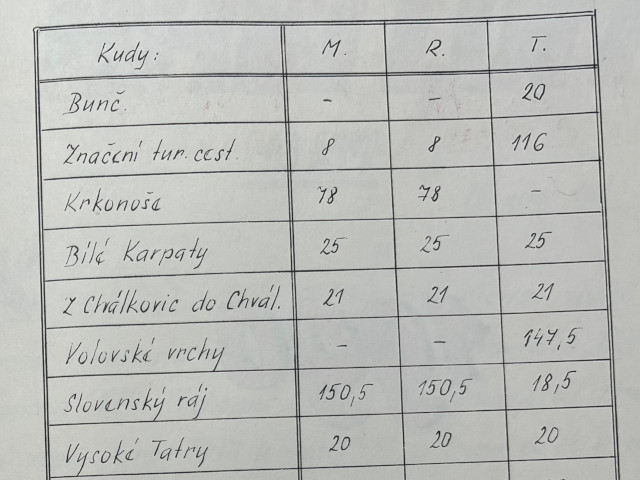 Kudy: M. R. T.
Bunč. - - 20
Značení tur. cest. 8 8 116
Krkonoše 78 78 -
Bílé Karpaty 25 25 25
Z Chválkovic do Chvál. 21 21 21
Volovské vrchy - - 147,5
Slovenský ráj 150,5 150,5 18,5
Vysoké Tatry 20 20 20